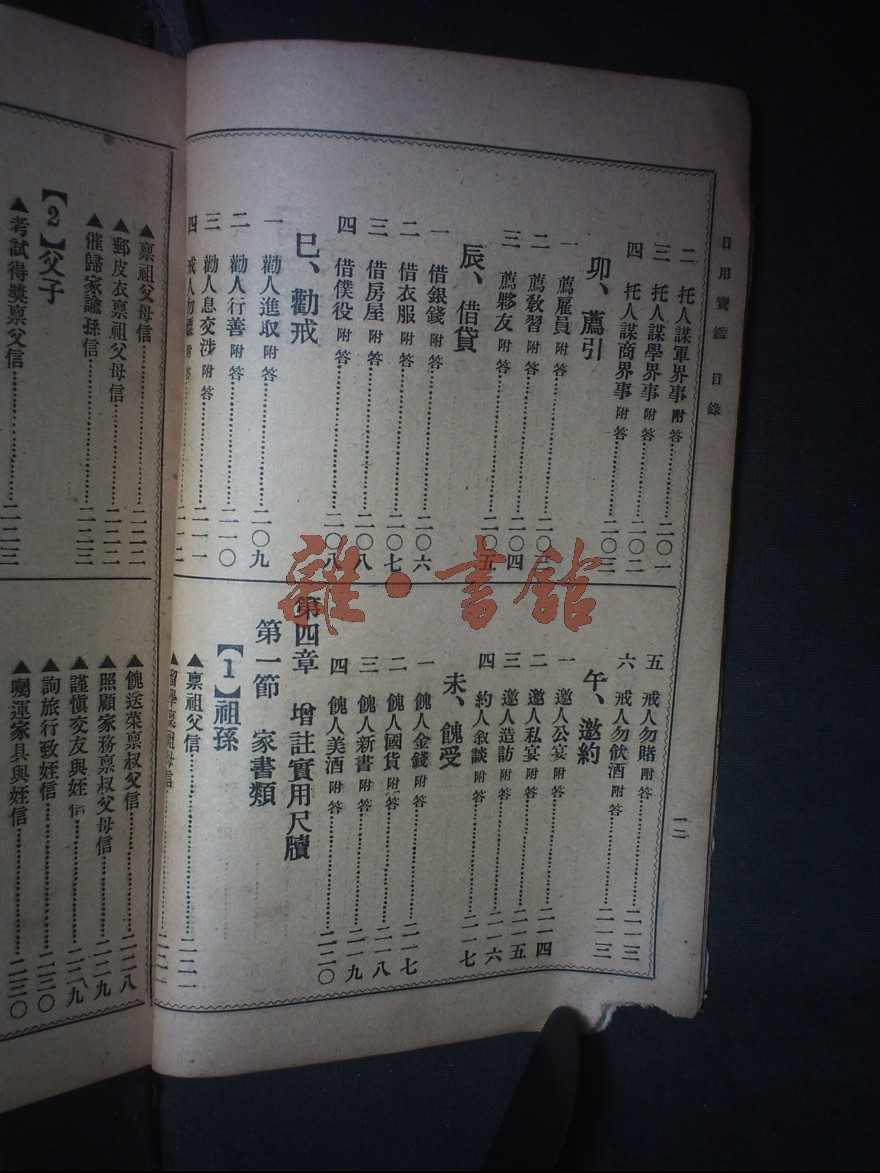 日用寶鑑 目錄
二 托人謀軍界事附答……二〇一
三 托人謀學界事附答……二〇二
四 托人謀商界事附答……二〇三
卯、薦引
一 薦雇員附答……二〇三
二 薦教習附答……二〇四
三 薦夥友附答……二〇五
辰、借貸
一 借銀錢附答……二〇六
二 借衣服附答……二〇七
三 借房屋附答……二〇八
四 借僕役附答……二〇八
巳、勸戒
一 勸人進取附答……二〇九
二 勸人行善附答……二一〇
三 勸人息交涉附答……二一一
四 戒人勿 附答……二一二
五 戒人勿賭附答……二一三
六 戒人勿飲酒附答……二一三
午、邀約
一 邀人公宴附答……二一四
二 邀人私宴附答……二一五
三 邀人造訪附答……二一六
四 約人敘談附答……二一七
未、餽受
一 餽人金錢附答……二一七
二 餽人國貨附答……二一八
三 餽人新書附答……二一九
四 餽人美酒附答……二二〇
第四章 增註實用尺牘
第一節 家書類
【1】祖孫
▲稟祖父信……二二一
▲留學稟祖母信……二二一
一二
▲稟祖父母信……二二二
▲郵皮衣稟祖父母信……二二二
▲催歸家諭孫信……二二三
【2】父子
▲考試得獎稟父信……二二三
▲餽送菜稟叔父信……二二八
▲照顧家務稟叔父母信……二二九
▲謹慎交友與姪信……二二九
▲詢旅行致姪信……二三〇
▲囑運家具與姪信……二三〇
雜·書館